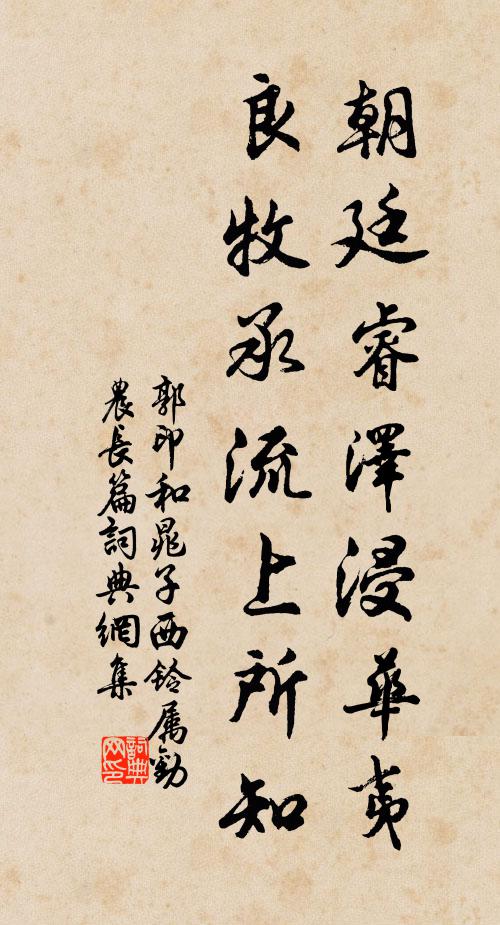 朝廷睿澤浸華夷
良牧承流上所知
郭印和晁子西鈴属勸
農長篇詞典網集
詞典
网印